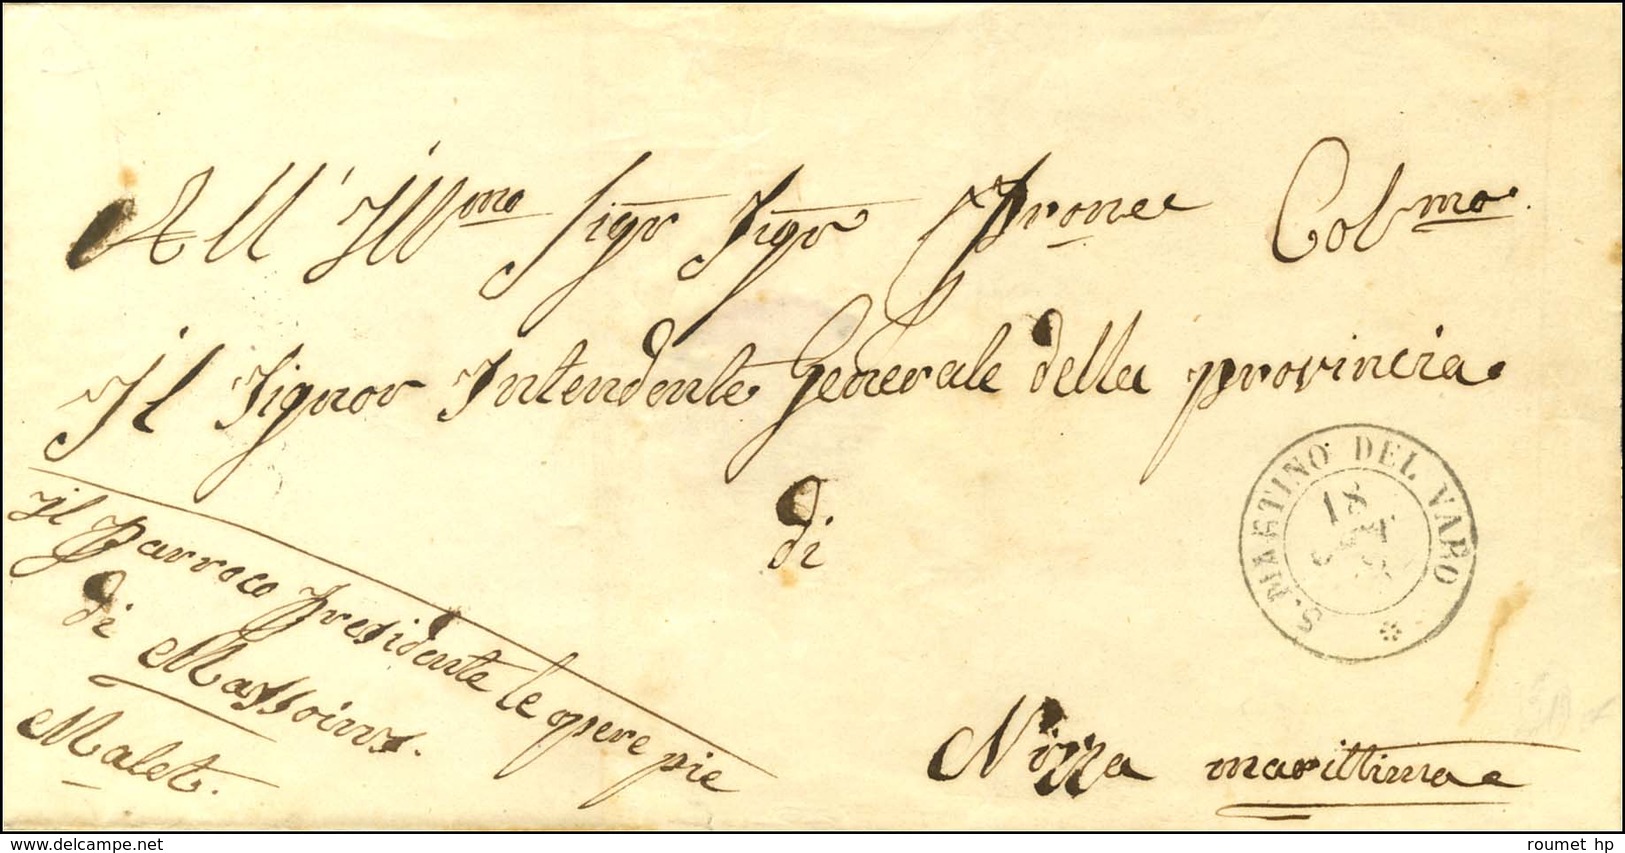 All' Illmo Sigr Sigr Prone Colmo.
Il Signor Intendente Generale della provincia
di
Nizza marittima
Il Parroco presidente le opere pie
di Massoins.
Malet.
S. MARTINO DEL VARO
18
www.delcampe.net
roumet hp